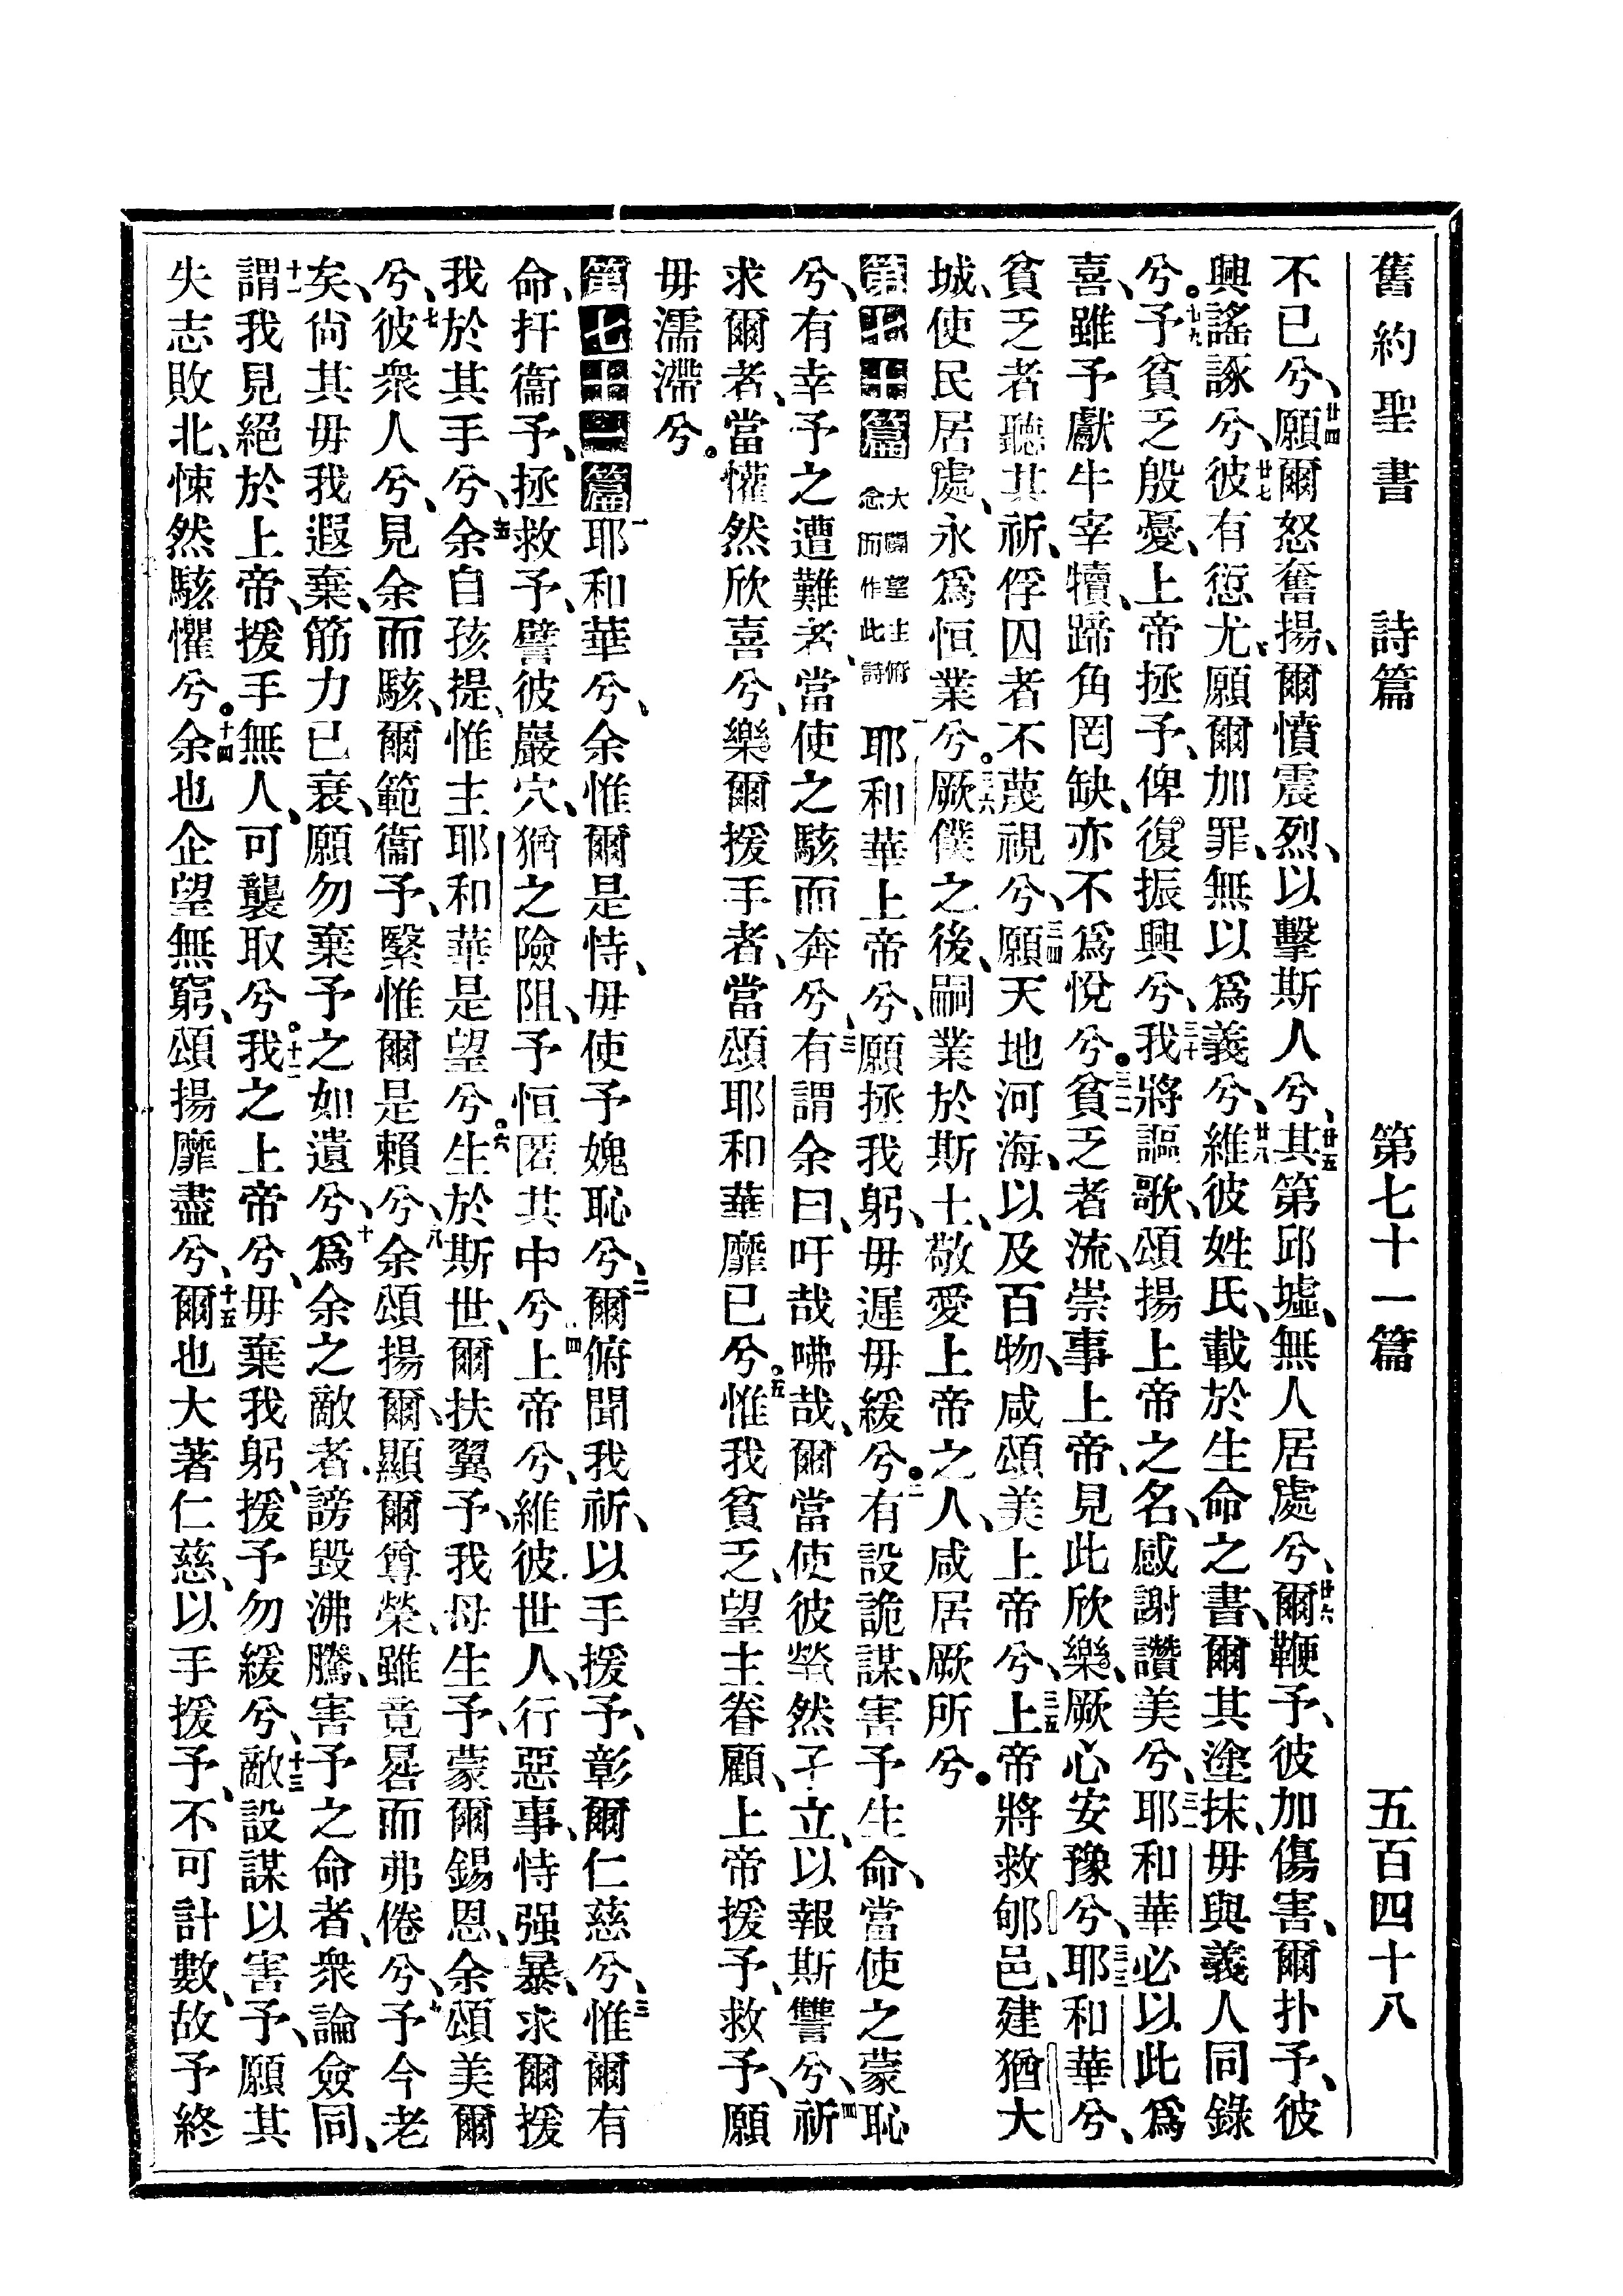 舊約聖書 詩篇 第七十一篇 五百四十八
不已兮、廿四願爾怒奮揚、爾憤震烈、以擊斯人兮、廿五其第邱墟、無人居處兮、廿六爾鞭予、彼加傷害、爾扑予、彼
興謠諑兮、廿七彼有愆尤、願爾加罪、無以爲義兮、廿八維彼姓氏、載於生命之書、爾其塗抹、毋與義人同錄
兮。廿九予貧乏殷憂、上帝拯予、俾復振興兮、三十我將謳歌、頌揚上帝之名、感謝讚美兮、三一耶和華必以此爲
喜、雖予獻牛宰犢、蹄角罔缺、亦不爲悅兮。三二貧乏者流、崇事上帝、見此欣樂、厥心安豫兮、三三耶和華兮、
貧乏者聽其祈、俘囚者不蔑視兮、三四願天地河海、以及百物、咸頌美上帝兮、三五上帝將救郇邑、建猶大
城、使民居處、永爲恒業兮。三六厥僕之後、嗣業於斯土、敬愛上帝之人、咸居厥所兮。
第七十篇 大闢望主俯念而作此詩 一耶和華上帝兮、願拯我躬、毋遲毋緩兮。二有設詭謀、害予生命、當使之蒙恥
兮、有幸予之遭難者、當使之駭而奔兮、三有謂余曰、吁哉咈哉、爾當使彼煢然孑立、以報斯讐兮、四祈
求爾者、當懽然欣喜兮、樂爾援手者、當頌耶和華靡已兮。五惟我貧乏、望主眷顧、上帝援予、救予、願
毋濡滯兮。
第七十一篇 一耶和華兮、余惟爾是恃、毋使予媿恥兮、二爾俯聞我祈、以手援予、彰爾仁慈兮、三惟爾有
命、扞衞予、拯救予、譬彼巖穴、猶之險阻、予恒匿其中兮、四上帝兮、維彼世人、行惡事、恃强暴、求爾援
我於其手兮、五余自孩提、惟主耶和華是望兮。六生於斯世、爾扶翼予、我母生予、蒙爾錫恩、余頌美爾
兮、七彼衆人兮、見余而駭、爾範衞予、緊惟爾是賴兮、八余頌揚爾、顯爾尊榮、雖竟晷而弗倦兮、九予今老
矣、尙其毋我遐棄、筋力已衰、願勿棄予之如遺兮、十爲余之敵者、謗毀沸騰、害予之命者、衆論僉同、
十一謂我見絕於上帝、援手無人、可襲取兮。十二我之上帝兮、毋棄我躬、援予勿緩兮、十三敵設謀以害予、願其
失志敗北、悚然駭懼兮。十四余也企望無窮、頌揚靡盡兮、十五爾也大著仁慈、以手援予、不可計數、故予終